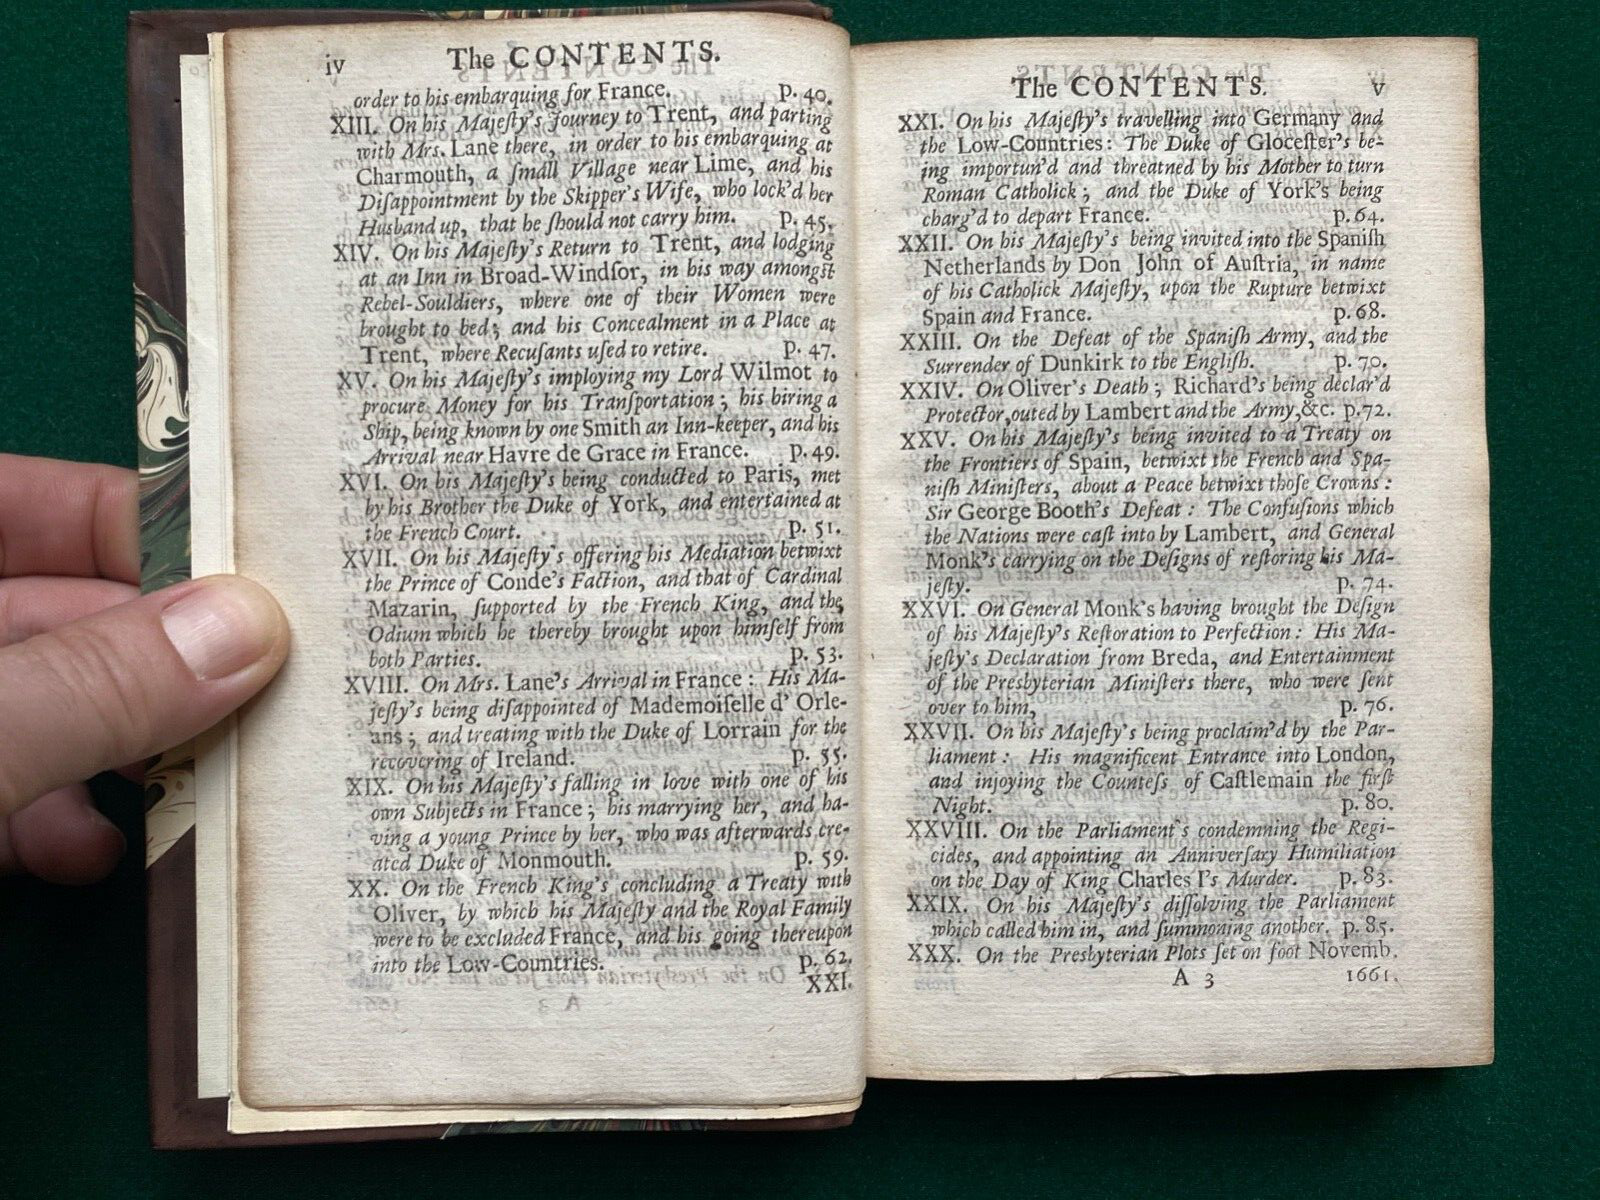 iv The CONTENTS.
order to his embarquing for France. p. 40.
XIII. On his Majeſty's Journey to Trent, and parting
with Mrs. Lane there, in order to his embarquing at
Charmouth, a ſmall Village near Lime, and his
Diſappointment by the Skipper's Wife, who lock'd her
Husband up, that he ſhould not carry him. p. 45.
XIV. On his Majeſty's Return to Trent, and lodging
at an Inn in Broad-Windſor, in his way amongst
Rebel-Souldiers, where one of their Women were
brought to bed; and his Concealment in a Place at
Trent, where Recuſants uſed to retire. p. 47.
XV. On his Majeſty's imploying my Lord Wilmot to
procure Money for his Tranſportation; his hiring a
Ship, being known by one Smith an Inn-keeper, and his
Arrival near Havre de Grace in France. p. 49.
XVI. On his Majeſty's being conducted to Paris, met
by his Brother the Duke of York, and entertained at
the French Court. p. 51.
XVII. On his Majeſty's offering his Mediation betwixt
the Prince of Conde's Faction, and that of Cardinal
Mazarin, ſupported by the French King, and the
Odium which he thereby brought upon himſelf from
both Parties. p. 53.
XVIII. On Mrs. Lane's Arrival in France: His Ma-
jeſty's being diſappointed of Mademoiſelle d' Orle-
ans; and treating with the Duke of Lorrain for the
recovering of Ireland. p. 55.
XIX. On his Majeſty's falling in love with one of his
own Subjects in France; his marrying her, and ha-
ving a young Prince by her, who was afterwards cre-
ated Duke of Monmouth. p. 59.
XX. On the French King's concluding a Treaty with
Oliver, by which his Majeſty and the Royal Family
were to be excluded France, and his going thereupon
into the Low-Countries. p. 62.
XXI.
The CONTENTS. v
XXI. On his Majeſty's travelling into Germany and
the Low-Countries: The Duke of Gloceſter's be-
ing importun'd and threatned by his Mother to turn
Roman Catholick; and the Duke of York's being
charg'd to depart France. p. 64.
XXII. On his Majeſty's being invited into the Spaniſh
Netherlands by Don John of Auſtria, in name
of his Catholick Majeſty, upon the Rupture betwixt
Spain and France. p. 68.
XXIII. On the Defeat of the Spaniſh Army, and the
Surrender of Dunkirk to the Engliſh. p. 70.
XXIV. On Oliver's Death; Richard's being declar'd
Protector, outed by Lambert and the Army, &c. p. 72.
XXV. On his Majeſty's being invited to a Treaty on
the Frontiers of Spain, betwixt the French and Spa-
niſh Miniſters, about a Peace betwixt thoſe Crowns:
Sir George Booth's Defeat: The Confuſions which
the Nations were caſt into by Lambert, and General
Monk's carrying on the Deſigns of reſtoring his Ma-
jeſty. p. 74.
XXVI. On General Monk's having brought the Deſign
of his Majeſty's Reſtoration to Perfection: His Ma-
jeſty's Declaration from Breda, and Entertainment
of the Presbyterian Miniſters there, who were ſent
over to him, p. 76.
XXVII. On his Majeſty's being proclaim'd by the Par-
liament: His magnificent Entrance into London,
and injoying the Counteſs of Caſtlemain the firſt
Night. p. 80.
XXVIII. On the Parliament's condemning the Regi-
cides, and appointing an Anniverſary Humiliation
on the Day of King Charles I's Murder. p. 83.
XXIX. On his Majeſty's diſſolving the Parliament
which called him in, and ſummoning another. p. 85.
XXX. On the Presbyterian Plots ſet on foot Novemb.
A 3 1661.